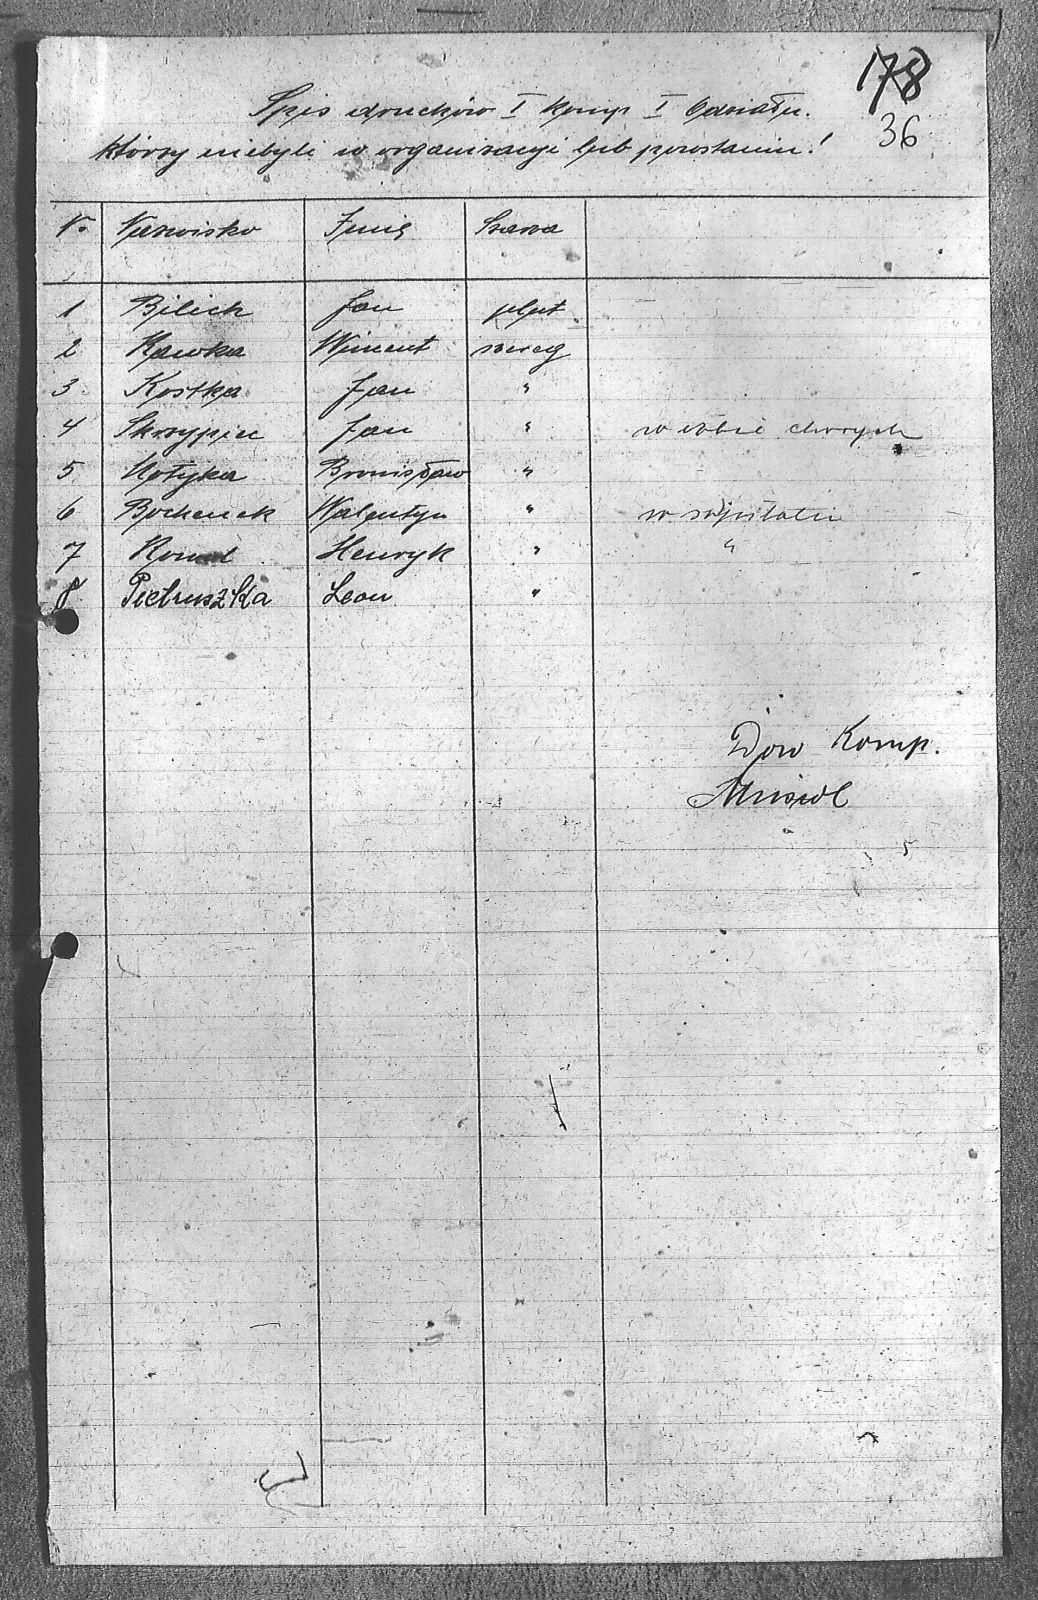 178
36
Spis druchów I Komp I Oddziału.
którzy niebyli w organizacji lub powstaniu!
N. Nazwisko Imię Szarża
1 Bjlich Jan plut
2 Kawka Wincent szereg
3 Kostka Jan "
4 Skrzypiec Jan " w izbie chorych
5 Motyka Bronisław "
6 Bochenek Walentyn " w szpitalu
7 Henryk " "
8 Pietruszka Leon "
Dow Komp.